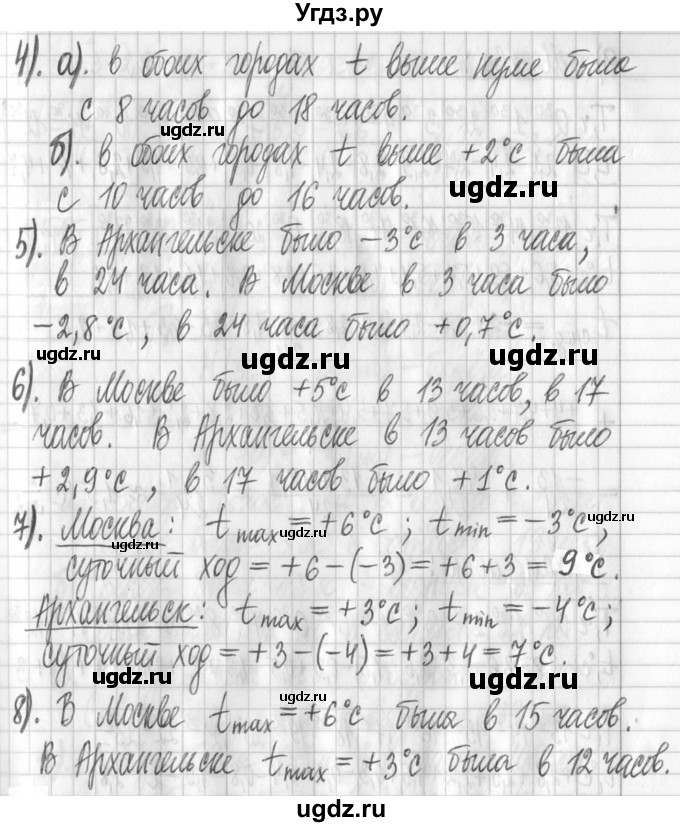 Угдз.ру
4). а). в обоих городах t выше нуле была
с 8 часов до 18 часов.
ugdz.ru
б). в обоих городах t выше +2°С была
с 10 часов до 16 часов.
ugdz.ru
5). В Архангельске было -3°С в 3 часа,
в 24 часа. В Москве в 3 часа было
-2,8°С, в 24 часа было +0,7°С.
ugdz.ru ugdz.ru ugdz.ru
6). В Москве было +5°С в 13 часов, в 17
часов. В Архангельске в 13 часов было
+2,9°С, в 17 часов было +1°С.
7). Москва: t max = +6°С; t min = -3°С;
ugdz.ru ugdz.ru ugdz.ru
суточный ход = +6-(-3) = +6+3 = 9°С.
Архангельск: t max = +3°С; t min = -4°С;
суточный ход = +3-(-4) = +3+4 = 7°С.
ugdz.ru ugdz.ru ugdz.ru
8). В Москве t max = +6°С была в 15 часов.
В Архангельске t max = +3°С была в 12 часов.
ugdz.ru